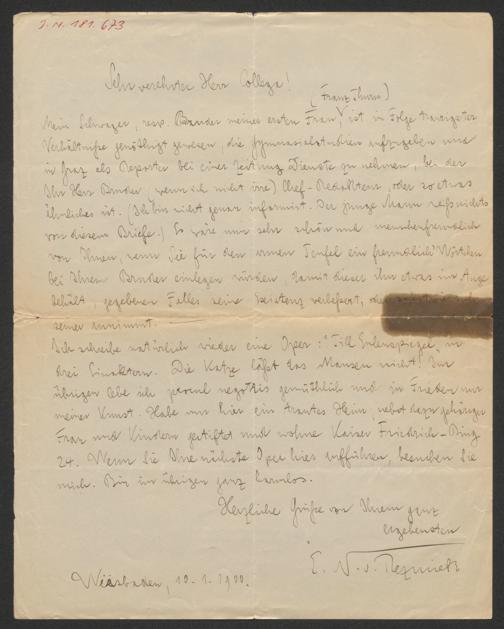 I.N. 181.673
Sehr verehrter Herr College!
(Franz Thurn)
Mein Schwager, resp. Bruder meiner ersten Frau ist in Folge trauriger
Verhältnisse genöthigt gewesen, die Gymnasialstudien aufzugeben und
in Graz als Reporter bei einer Zeitung Dienste zu nehmen, bei der
Ihr Herr Bruder, (wenn ich nicht irre) Chef-Redakteur, oder so etwas
ähnliches ist. (Ich bin nicht genau informirt. Der junge Mann weiß nichts
von diesem Briefe.) Es wäre nun sehr schön und menschenfreundlich
von Ihnen, wenn Sie für den armen Teufel ein freundlich Wörtchen
bei Ihrem Bruder einlegen würden, damit dieser ihn etwas im Auge
behält, gegebenen Falles seine Existenz verbessert,
seiner annimmt.
Ich schreibe natürlich wieder eine Oper: "Till Eulenspiegel" in
drei Einaktern. Die Katze läßt das Mausen nicht! Im
übrigen lebe ich procul negotiis gemüthlich und in Frieden nur
meiner Kunst. Habe mir hier ein trautes Heim, nebst dazu gehöriger
Frau und Kindern gestiftet und wohne Kaiser Friedrich-Ring
24. Wenn Sie Ihre nächste Oper hier aufführen, besuchen Sie
mich. Bin im übrigen ganz harmlos.
Herzliche Grüße von Ihrem ganz
ergebensten
E. N. v. Reznicek
Wiesbaden, 10.1.1900.